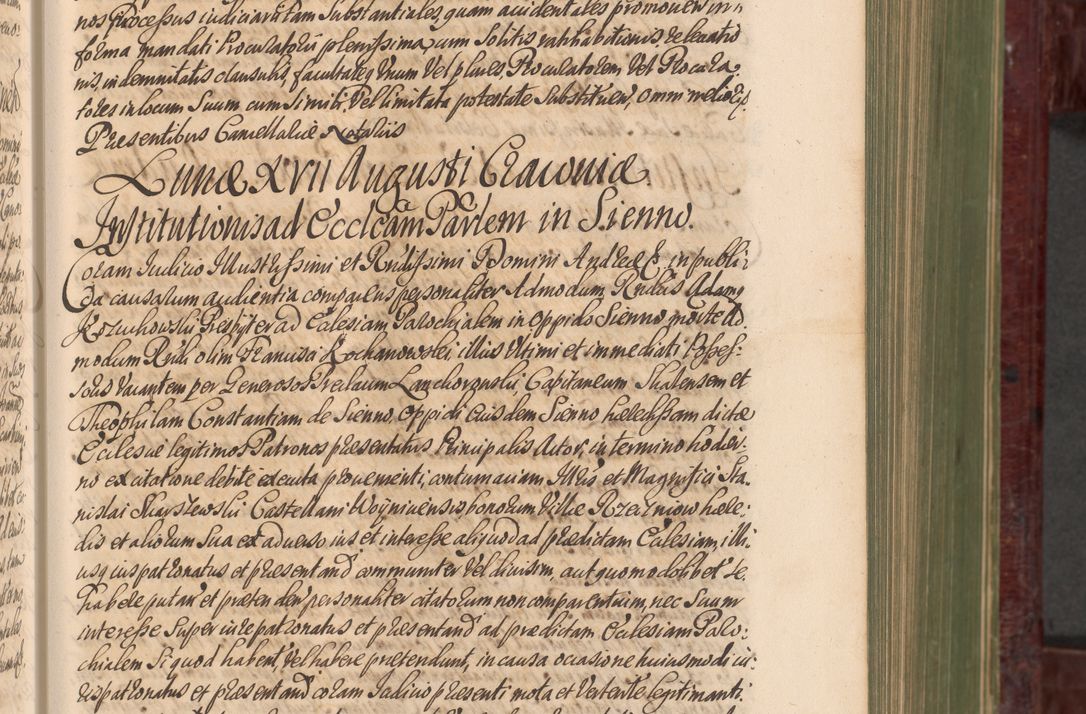 nos processus iudiciarii tam substantiales, quam accidentales promoven in
forma mandati Procuratorii plenissima, cum solitis ratihabitionis, relevatio
nis, indemnitatis clausulis, facultateq Unum Vel plures, Procuratorem Vel Procura
tores in locum Suum cum simili Vel limitata potestate Substituen, omni meliori
Praesentibus Cancellariae Notariis
Lunae XVII Augusti Cracoviae.
Institutionis ad Ecclcam Parlem in Sienno.
Coram Iudicio Illustrissimi et Rndissimi Domini Andreae & in publi:
ca causarum audientia comparens personaliter Admodum Rndus Adamg
Kozuchowski Presbyter ad Eclesiam Parochialem in oppido Sienno, morte Ad
modum Rndi olim Francisci Kochanowski illius Ultimi et immediati Posses:
soris vacantem per Generosos Lanckoronski, Capitaneum Skalensem et
Theophilam Constantiam de Sienno, oppidi eiusdem Sienno haeredissam dictae
Eclesiae legitimos Patronos praesentatus Principalis Actor, in termino hodier:
no ex citatione debite executa provenienti, contumaciam Illris et Magnifici Sta
nislai Castellani Woyniciensis bonorum Villae Rzeczniow haere:
dis et aliorum sua ex adverso ius et interesse aliquod ad praedictam Eclesiam, illi
usq ius patronatus et praesentand communiter Vel divisim, aut quomodolibet se
habere putan et praetenden personaliter citatorum non comparentium, nec Suum
interesse super iure patronatus et praesentand ad praedictam Eclesiam Paro:
chialem Si quod habent, Vel habere praetendunt, in causa occasione huiusmodi iu:
ris patronatus et praesentand coram Iudicio praesenti mota et Vertente legitimanti.